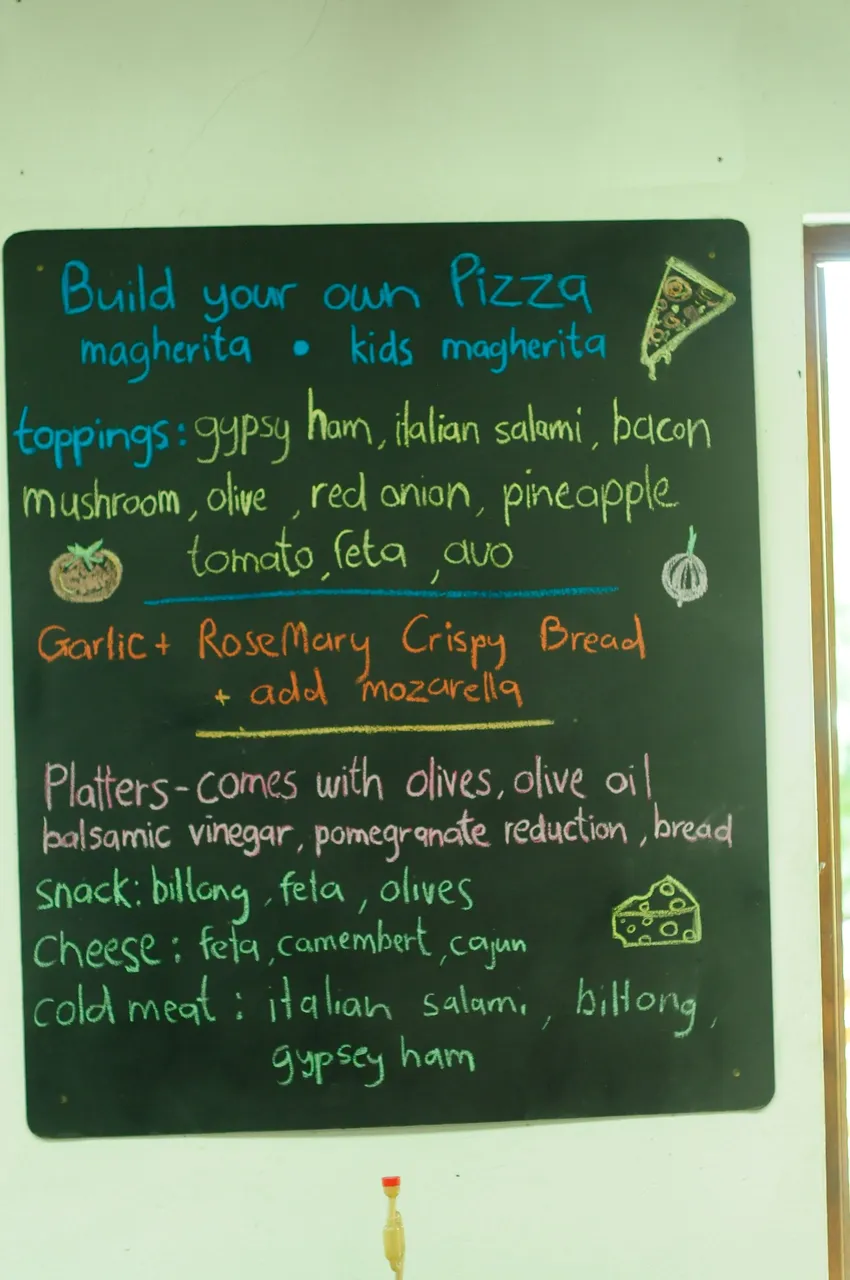 Build your own Pizza
magherita • kids magherita
toppings: gypsy ham, italian salami, bacon
mushroom, olive, red onion, pineapple
tomato, feta, avo
Garlic + RoseMary Crispy Bread
+ add mozarella
Platters - comes with olives, olive oil
balsamic vinegar, pomegranate reduction, bread
snack: billong, feta, olives
Cheese: feta, camembert, cajun
cold meat: italian salami, biltong,
gypsey ham